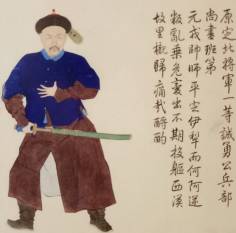 原定北將軍一等誠勇公兵部
尚書班第
元戎帥師平定伊犁而何阿逆
叛亂乘危出不期投軀西
故里櫬歸痛哉酹酌